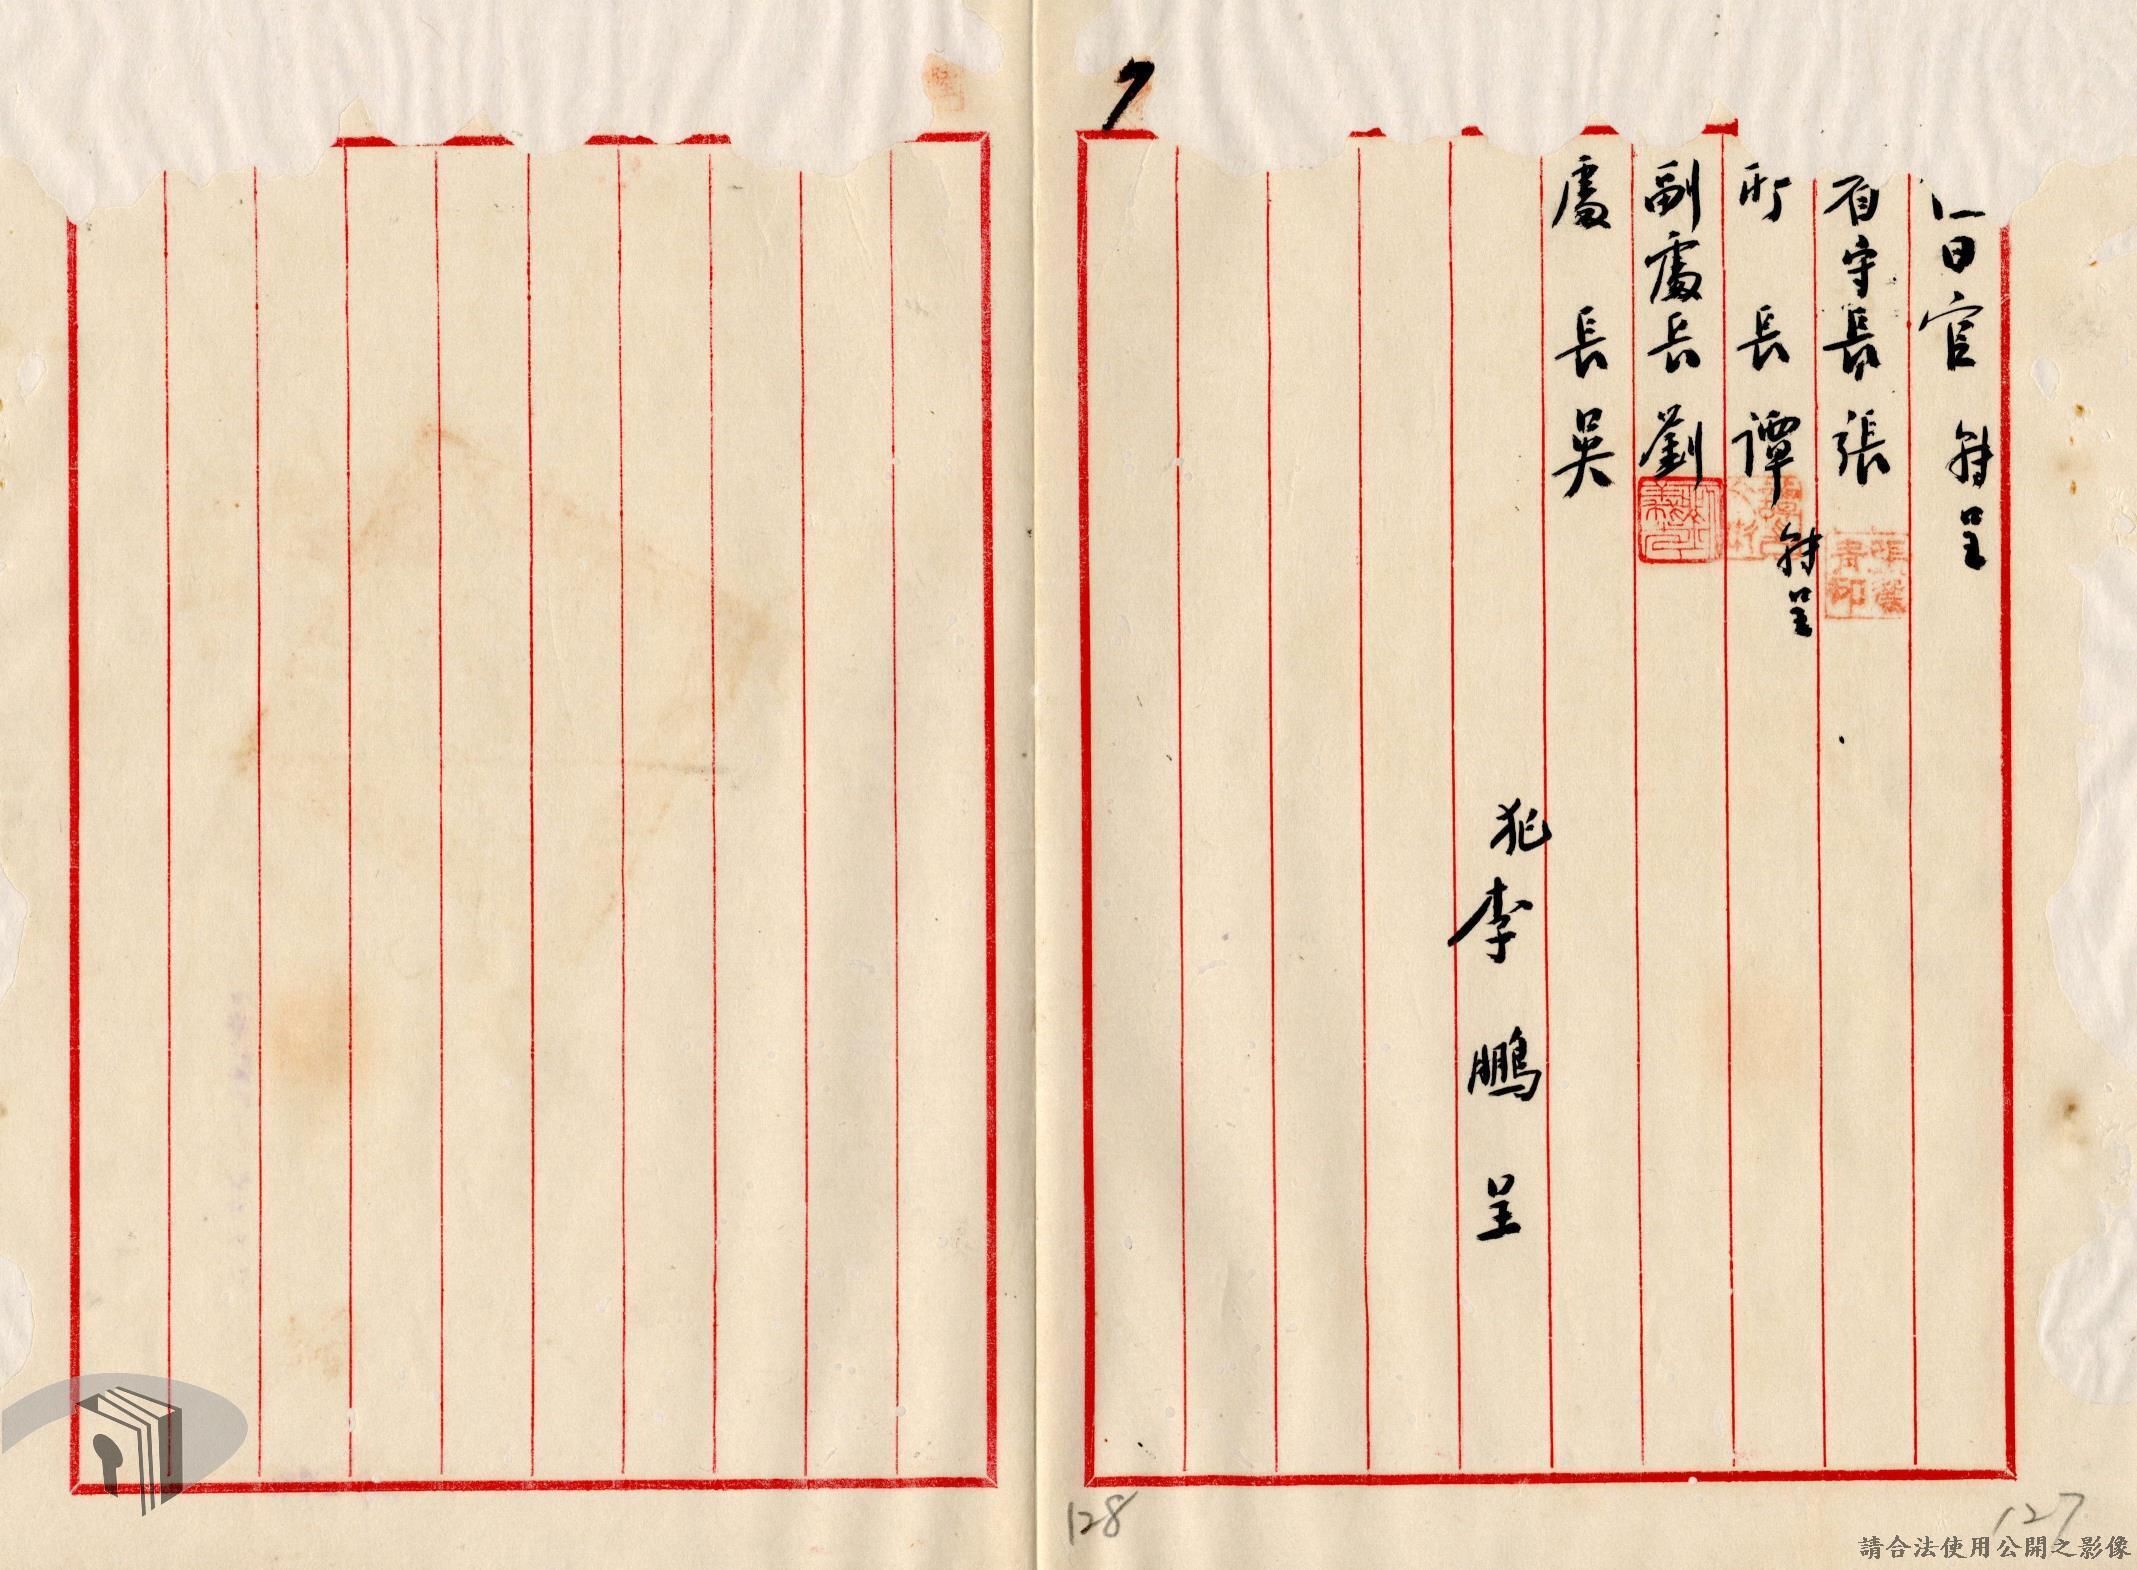 日官 轉呈
看守長張
所長譚 轉呈
副處長劉
處長吳
犯李鵬呈
127
128
請合法使用公開之影像